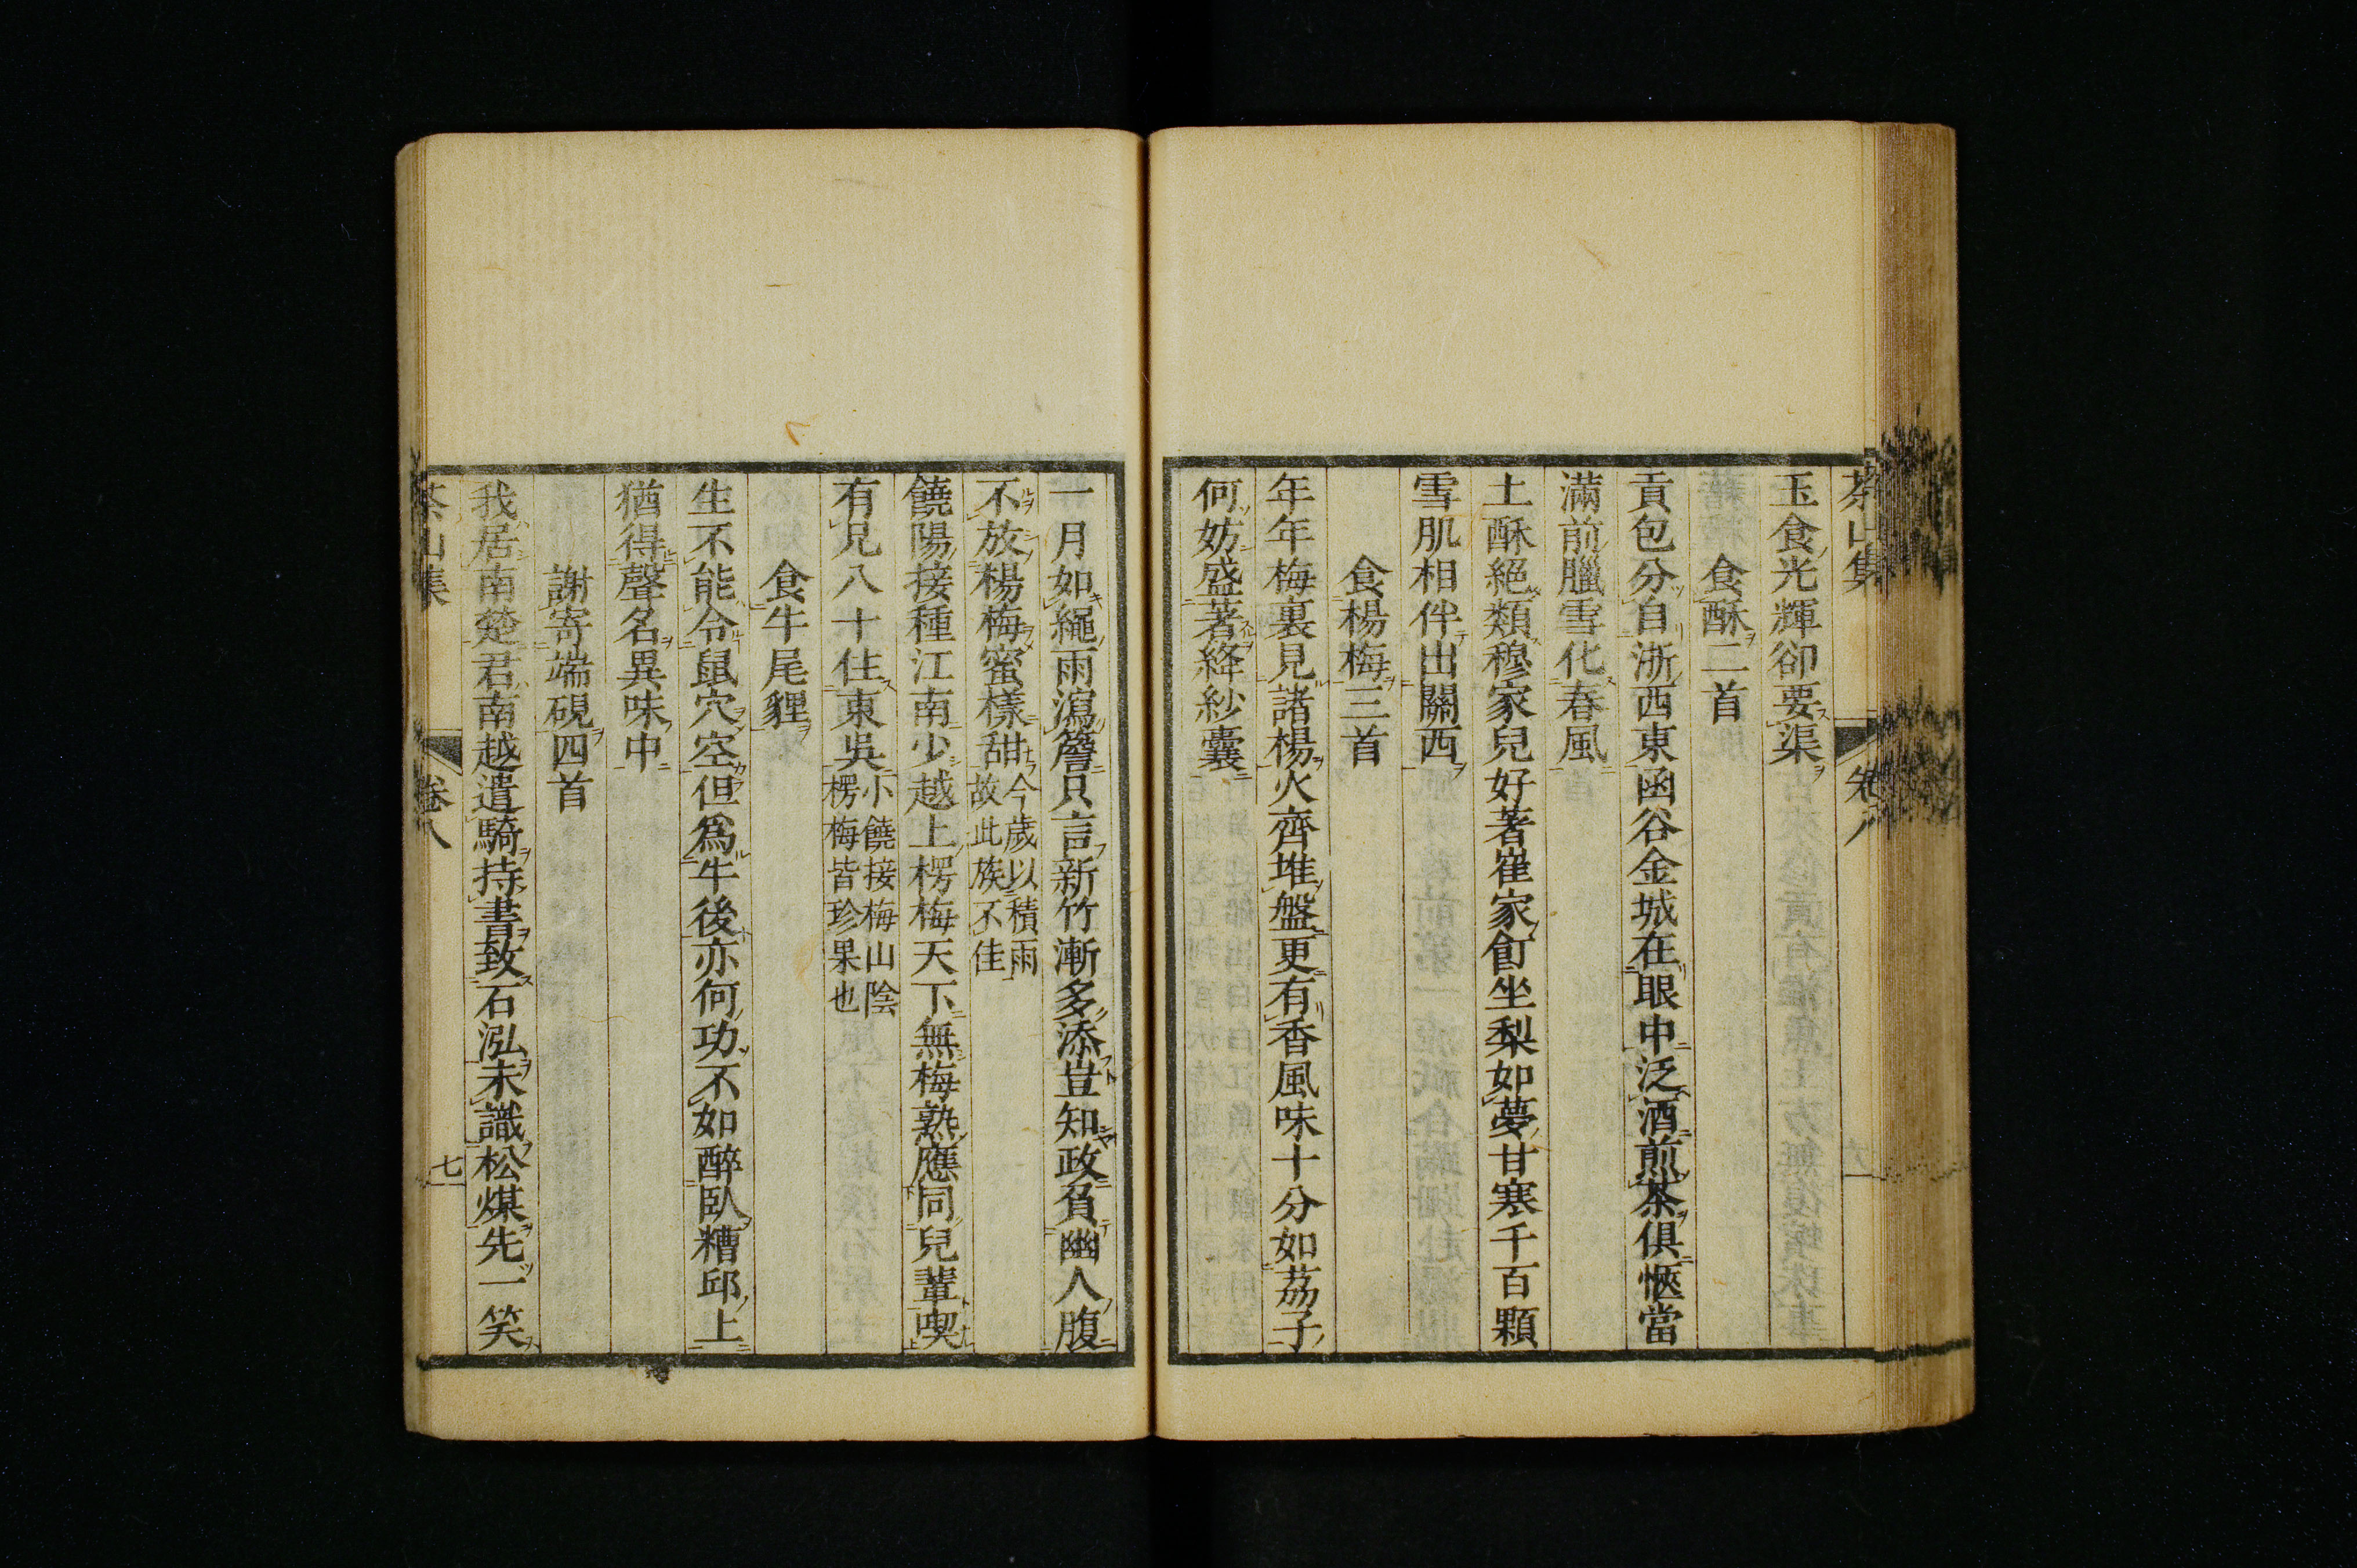 茶山集 卷八
玉食光輝卻要渠
食酥二首
貢包分自浙西東函谷金城在眼中泛酒煎茶俱愜當
滿前臘雪化春風
土酥絕類穆家兒好著崔家飣坐梨如夢甘寒千百顆
雪肌相伴出關西
食楊梅三首
年年梅裏見諸楊火齊堆盤更有香風味十分如荔子
何妨盛著絳紗囊
一月如繩雨瀉簷只言新竹漸多添豈知政負幽人腹
不放楊梅蜜樣甜今歲以積雨故此族不佳
饒陽接種江南少越上楞梅天下無梅熟應同兒輩喫
有見八十住東吳小饒接梅山陰楞梅皆珍果也
食牛尾貍
生不能令鼠穴空但爲牛後亦何功不如醉臥糟邱上
猶得聲名異味中
謝寄端硯四首
我居南楚君南越遣騎持書致石泓未識松煤先一笑
茶山集 卷八 七